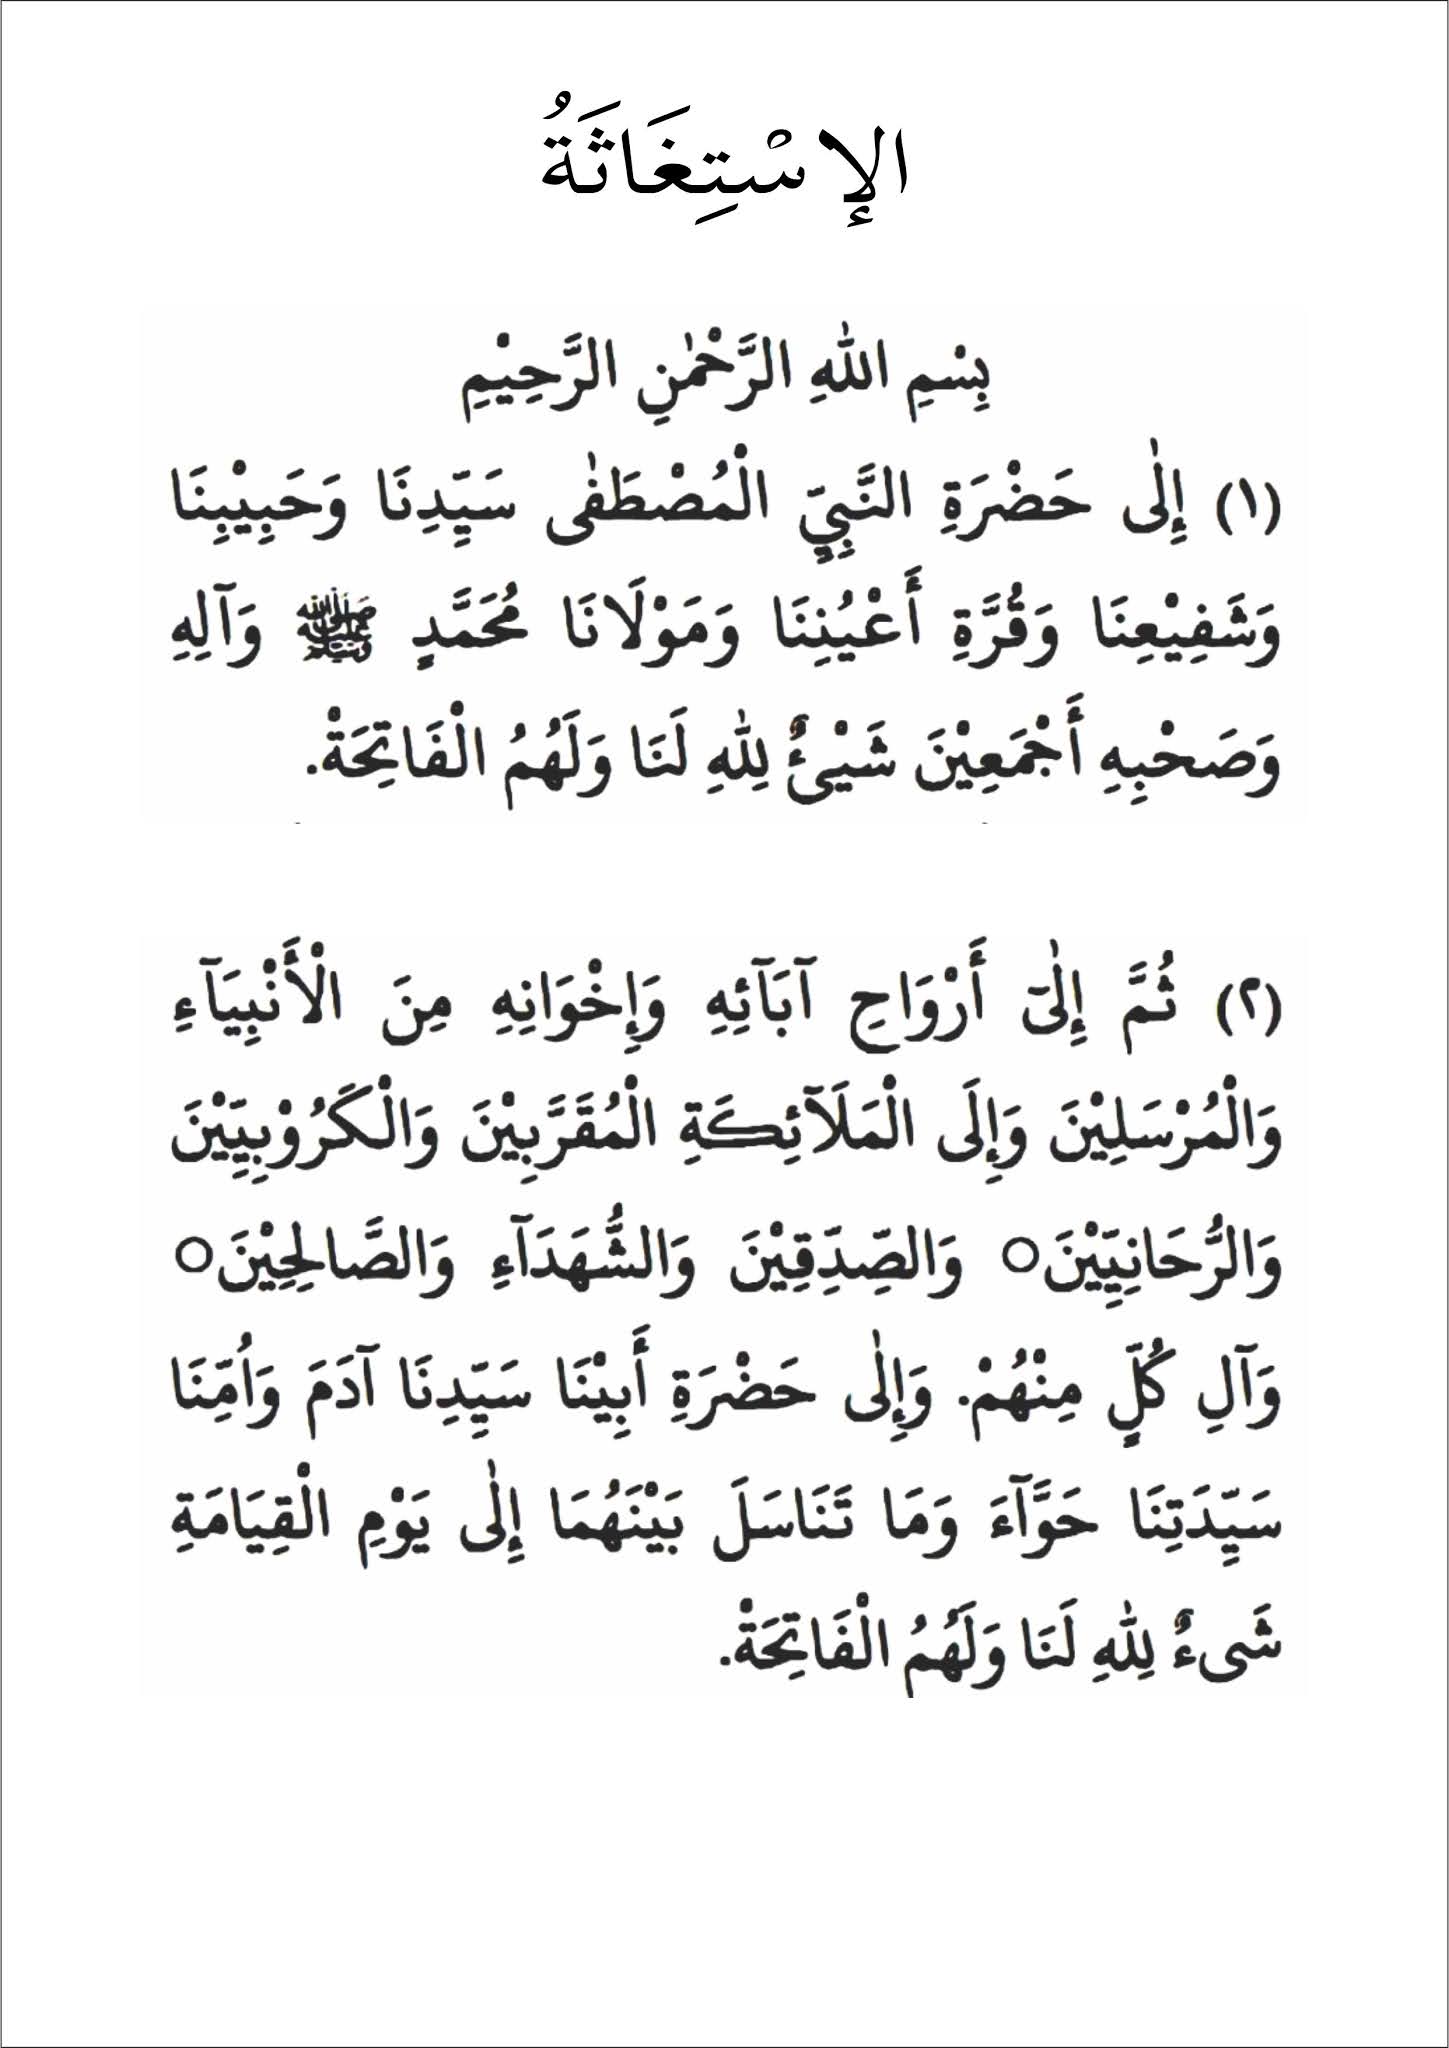 الإسْتِغَاثَةُ
بِسْمِ اللهِ الرَّحْمٰنِ الرَّحِيْمِ
(١) إِلٰى حَضْرَةِ النَّبِيِّ الْمُصْطَفٰى سَيِّدِنَا وَحَبِيْبِنَا
وَشَفِيْعِنَا وَقُرَّةِ أَعْيُنِنَا وَمَوْلَانَا مُحَمَّدٍ ﷺ وَآلِهِ
وَصَحْبِهِ أَجْمَعِيْنَ شَيْئٌ لِلّٰهِ لَنَا وَلَهُمُ الْفَاتِحَةْ.
(٢) ثُمَّ إِلٰىٓ أَرْوَاحِ آبَآئِهِ وَإِخْوَانِهِ مِنَ الْأَنْبِيَآءِ
وَالْمُرْسَلِيْنَ وَإِلَى الْمَلَآئِكَةِ الْمُقَرَّبِيْنَ وَالْكَرُوْبِيِّيْنَ
وَالرُّحَانِيِّيْنَ○ وَالصِّدِّقِيْنَ وَالشُّهَدَآءِ وَالصَّالِحِيْنَ○
وَآلِ كُلٍّ مِنْهُمْ. وَإِلٰى حَضْرَةِ أَبِيْنَا سَيِّدِنَا آدَمَ وَاُمِّنَا
سَيِّدَتِنَا حَوَّآءَ وَمَا تَنَاسَلَ بَيْنَهُمَا إِلٰى يَوْمِ الْقِيَامَةِ
شَىءٌ لِلّٰهِ لَنَا وَلَهُمُ الْفَاتِحَةْ.